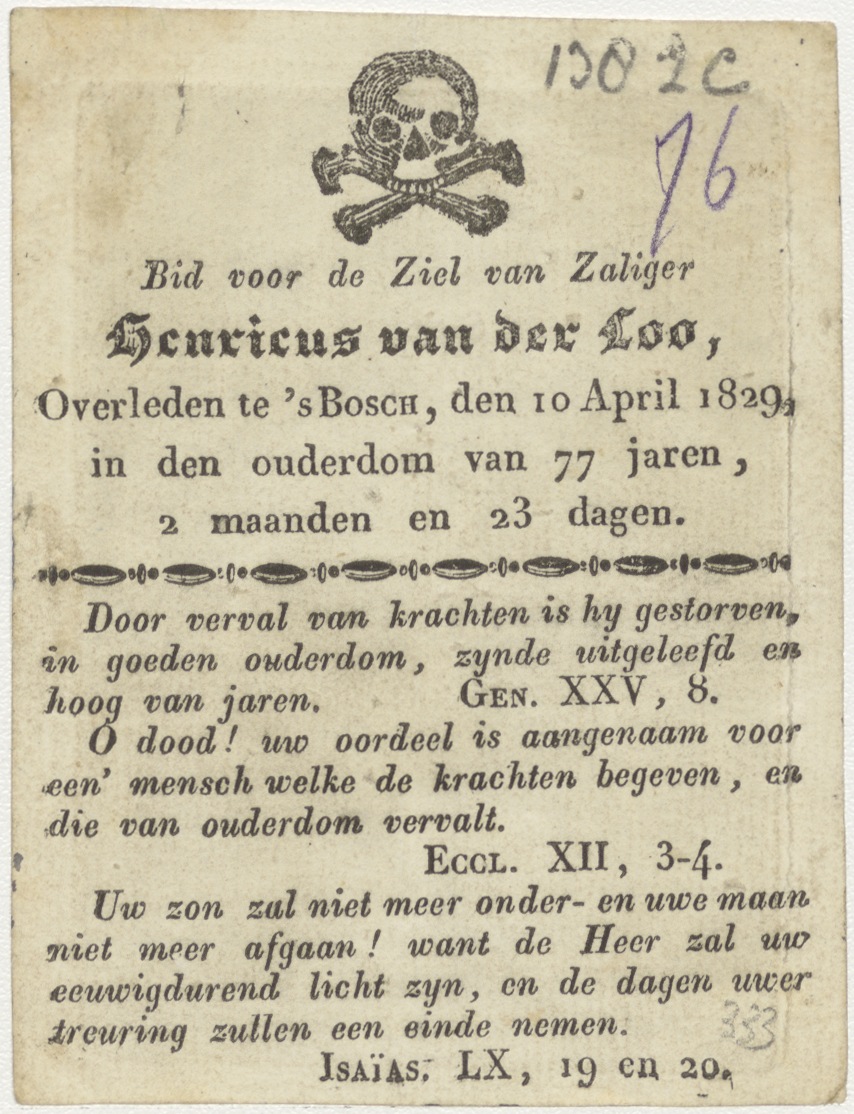 1382c
76
Bid voor de Ziel van Zaliger
Henricus van der Loo,
Overleden te 's Bosch, den 10 April 1829,
in den ouderdom van 77 jaren,
2 maanden en 23 dagen.
Door verval van krachten is hy gestorven,
in goeden ouderdom, zynde uitgeleefd en
hoog van jaren. Gen. XXV, 8.
O dood! uw oordeel is aangenaam voor
een' mensch welke de krachten begeven, en
die van ouderdom vervalt.
Eccl. XII, 3-4.
Uw zon zal niet meer onder- en uwe maan
niet meer afgaan! want de Heer zal uw
eeuwigdurend licht zyn, en de dagen uwer
treuring zullen een einde nemen.
Isaïas. LX, 19 en 20.
333